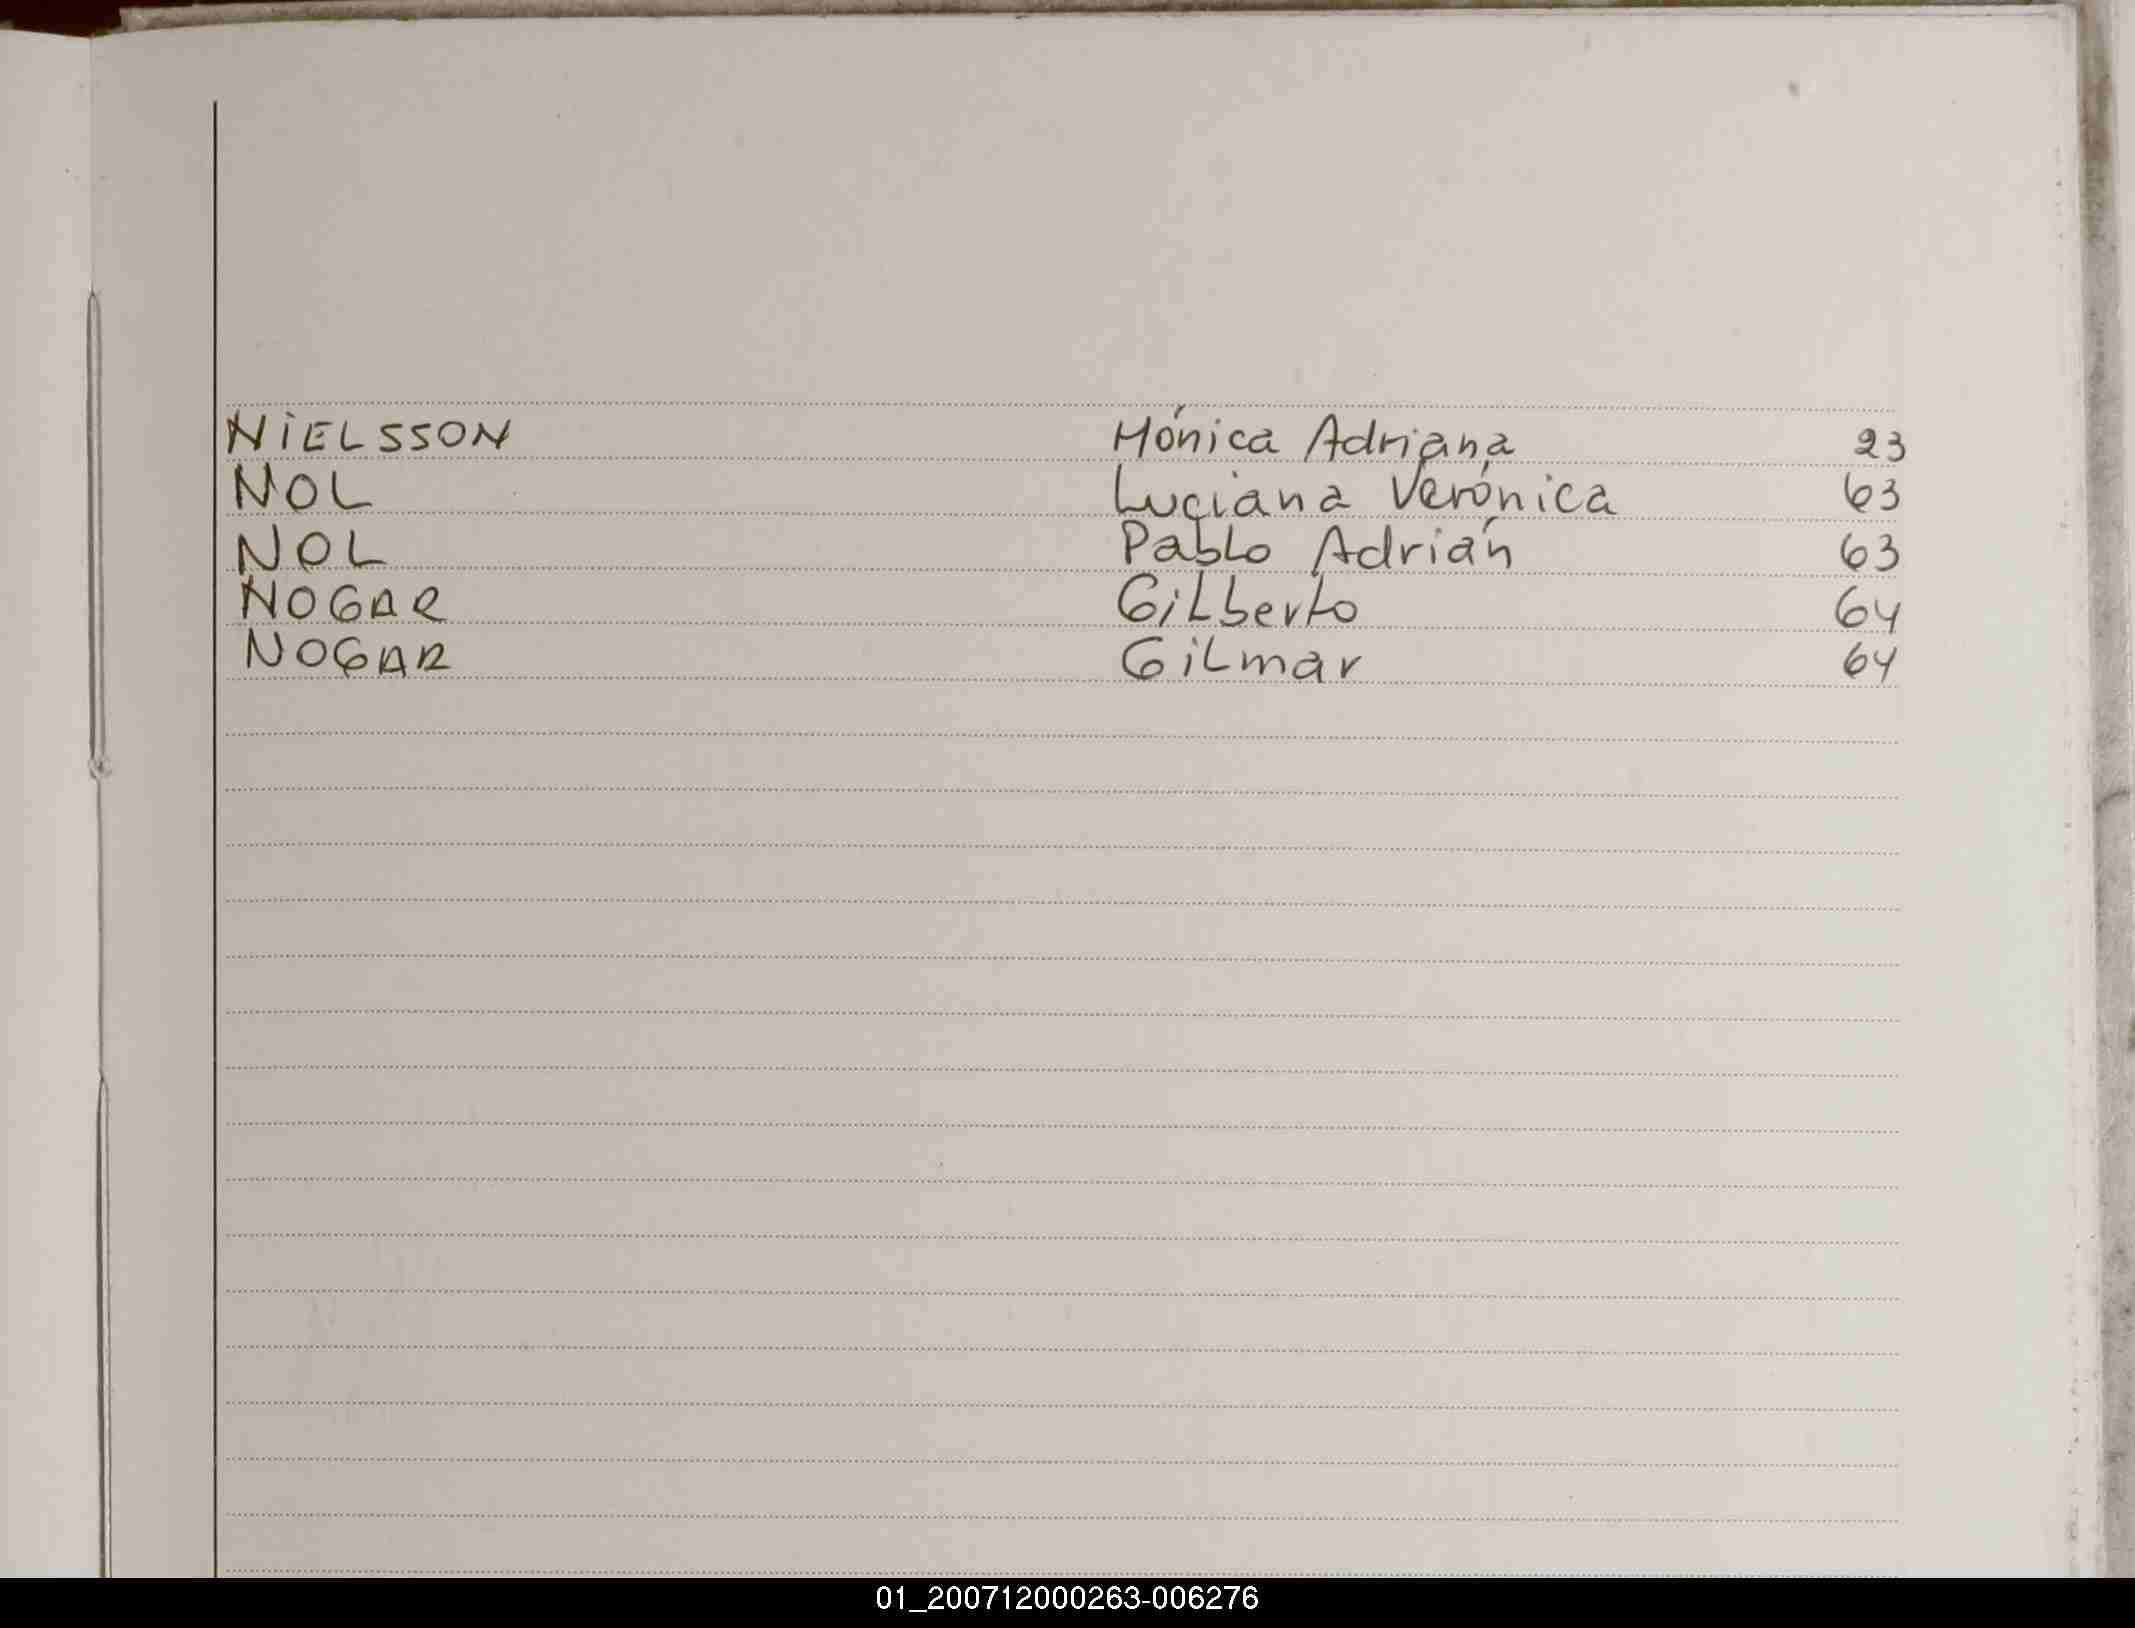 NiELSSON Mónica Adriana 23
NOL Luciana Verónica 63
NOL Pablo Adrián 63
NOGAR Gilberto 64
NOGAR Gilmar 64
01_200712000263-006276